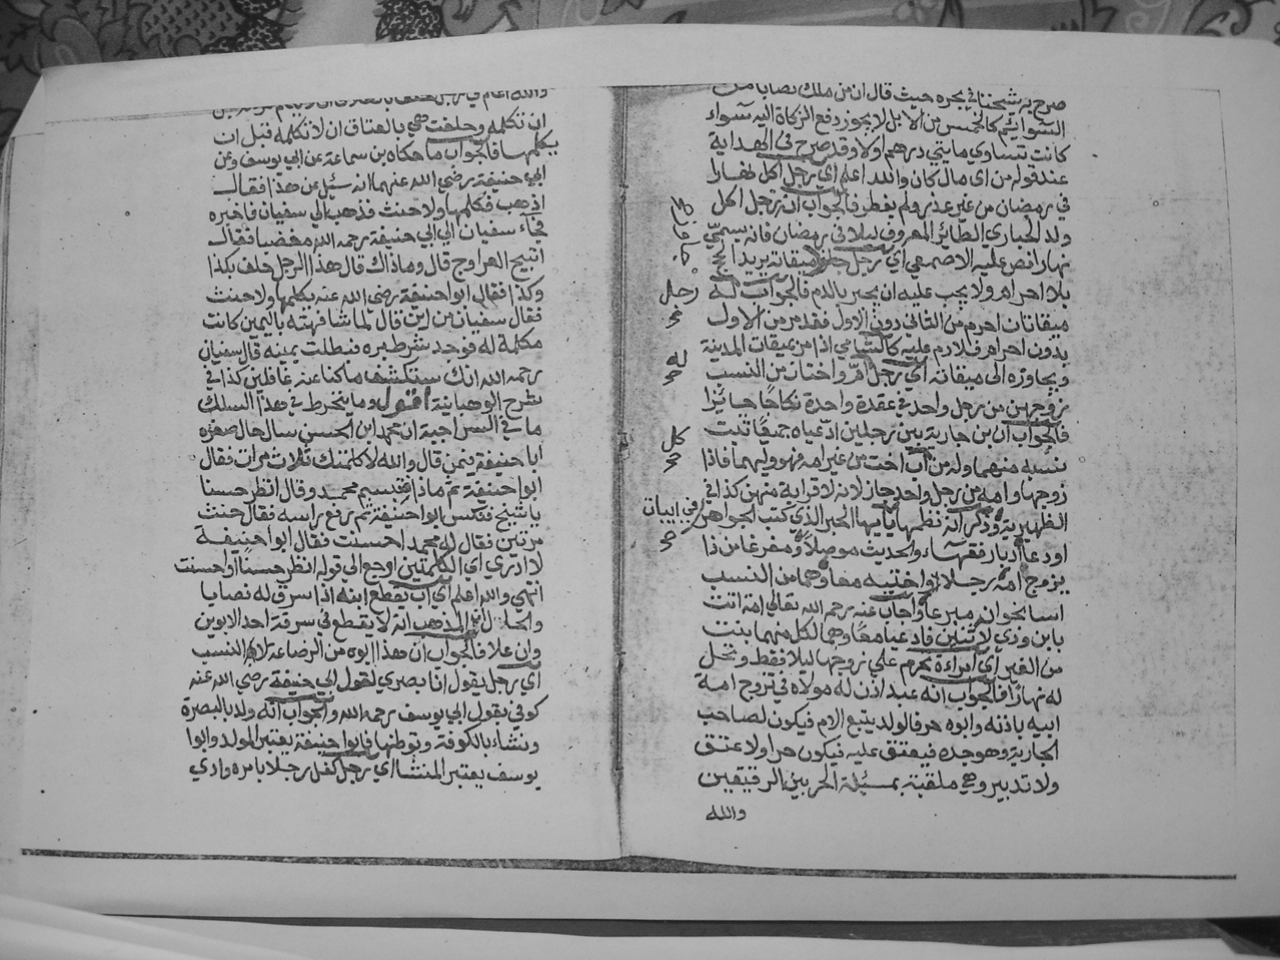 صرح به شيخنا في بحره حيث قال ان من ملك نصابا من
السوائم كالخمس من الابل لا يجوز دفع الزكاة اليه سواء
كانت تساوي مايتي درهم اولا وقد صرح في الهداية
عند قوله من اي مال كان والله اعلم اي رجل اكل نهارا
في رمضان من غير عذر ولم يفطر فالجواب انه رجل اكل
ولد الحباري الطائر المعروف ليلا في رمضان فانه يسمي
نهارا نص عليه الاصمعي اي رجل جاوز ميقاته يريد الحج
بلا احرام ولا يجب عليه ان يجبر بالدم فالجواب له
ميقاتان احرم من الثاني دون الاول فقد مر من الاول
بدون احرام فلا دم عليه كالشامي اذا مر بميقات المدينة
ويجاوزه الى ميقاته اي رجل ام واختان من النسب
تزوجهن من رجل واحد في عقدة واحدة نكاحا جائزا
فالجواب ابن جارية بين رجلين ادعياه جميعا ثبت
نسبه منهما وله من اب اخت من غير امه فهو وليهما فاذا
زوجها وامه من رجل واحد جاز لانه لا قرابة منهن كذا في
الظهيرية وذكر انه نظمها يا ايها الحبر الذي كتب الجواهر
في ابيات
اودعا ديار فقهاء والحديث موصلا ومفرغا من ذا
يزوج امه رجلا واختيه معا وهما من النسب
اسا نحو انه مسرعا واجاب عنه رحمه الله تعالي امة اتت
بابن وذي لاثنين فادعيا معا وهما لكل منهما بنت
من الغير اي امراءة تحرم علي زوجها ليلا فقط وتحل
له نهارا فالجواب انه عبد اذن له مولاه في تزوج امة
ابيه باذنه وابوه حر فالولد يتبع الام فيكون لصاحب
الجارية وهو جده فيعتق عليه فيكون حرا ولا عتق
ولا تدبير وهي ملقبة بمسئلة الحر بين الرقيقين
والله
والله اعلم اي رجل حلف
ان تكلمه وحلفت هي بالعتاق ان لا تكلمه قبل ان
يكلمها فالجواب ما حكاه بن سماعة عن ابي يوسف وعن
ابي حنيفة رضي الله عنهما انه سئل عن هذا فقال
اذهب فكلمها ولا حنث فذهب الي سفيان فاخبره
فجاء سفيان الي ابي حنيفة رحمه الله مغضبا فقال
اتبيح الفروج قال وما ذاك قال هذا الرجل حلف بكذا
وكذا فقال ابو حنيفة رضي الله عنه يكلمها ولا حنث
فقال سفيان من اين قال لما شافهته باليمين كانت
مكلمة له فوجد شرط بره فبطلت يمينه قال سفيان
رحمه الله انك ستكشف ما كنا عنه غافلين كذا في
شرح الوهبانية اقول ومما ينخرط في هذا السلك
ما في السراجية ان محمد ابن الحسن سال حال صغره
ابا حنيفة فيمن قال والله لا كلمتك ثلاث مرات فقال
ابو حنيفة ثم ماذا فتبسم محمد وقال انظر حسنا
يا شيخ فنكس ابو حنيفة ثم رفع راسه فقال حنث
مرتين فقال له محمد احسنت فقال ابو حنيفة
لا ادري اي الكلمتين اوجع الي قوله انظر حسنا او احسنت
انتهي والله اعلم اي اب يقطع ابنه اذا سرق له نصابا
والحال ان المذهب انه لا يقطع في سرقة احد الابوين
وان علا فالجواب ان هذا ابوه من الرضاعة لا النسب
اي رجل يقول انا بصري لقول ابي حنيفة رضي الله عنه
كوفي بقول ابي يوسف رحمه الله والجواب انه ولد بالبصرة
ونشاء بالكوفة وتوطنها فابو حنيفة يعتبر المولد وابو
يوسف يعتبر المنشا اي رجل كفل رجلا بامره وادي